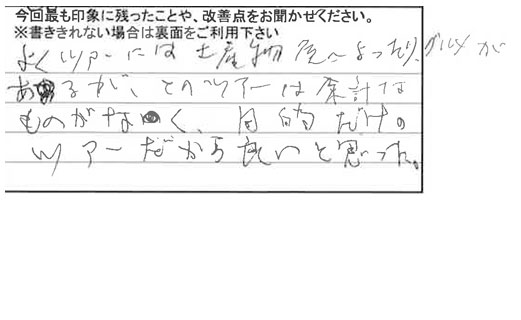 今回最も印象に残ったことや、改善点をお聞かせください。
※書ききれない場合は裏面をご利用下さい
よくツアーには土産物店へよったり、グルメが
あるが、このツアーは余計な
ものがなく、目的だけの
ツアーだから良いと思った。